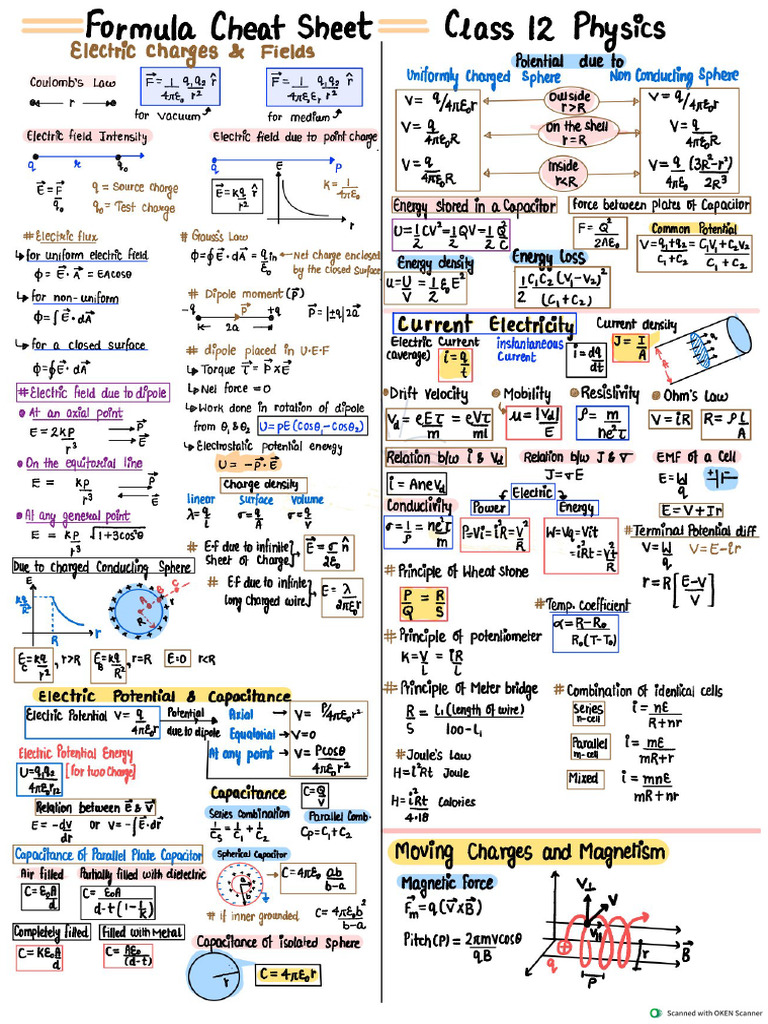 Formula Cheat Sheet
Class 12 Physics
Electric Charges & Fields
Coulomb's Law
r
F⃗ = 1/4πε₀ q₁q₂/r² r̂
for vacuum
F⃗ = 1/4πε₀εr q₁q₂/r² r̂
for medium
Electric field Intensity
q r q₀
E⃗ = F⃗/q₀
q = Source charge
q₀ = Test charge
Electric field due to point charge
q P
E⃗ = kq/r² r̂
E
r
k = 1/4πε₀
# Electric flux
↳ for uniform electric field
ϕ = E⃗ · A⃗ = EAcosθ
↳ for non-uniform
ϕ = ∫E⃗ · dA⃗
↳ for a closed surface
ϕ = ∮E⃗ · dA⃗
# Gauss's Law
ϕ = ∮E⃗ · dA⃗ = qin/ε₀
Net charge enclosed
by the closed Surface
# Dipole moment (p⃗)
-q p⃗ +q
2a
P⃗ = |±q| 2a⃗
# dipole placed in U.E.F
↳ Torque τ⃗ = P⃗ × E⃗
↳ Net force = 0
↳ Work done in rotation of dipole
from θ₁ & θ₂ U = pE (cosθ₁ - cosθ₂)
↳ Electrostatic potential energy
U = -P⃗ · E⃗
# Electric field due to dipole
At an axial point
E = 2kp/r³
P⃗
E⃗
On the equitorial line
E = kp/r³
P⃗
E⃗
At any general point
E = kp/r³ √1+3cos²θ
Charge density
linear surface volume
λ = q/L σ = q/A σ = q/V
# E·f due to infinite
sheet of Charge
E⃗ = σ/2ε₀ n̂
# E·f due to infinite
long charged wire
E = λ/2πε₀r
Due to charged Conducting Sphere
E
kq/R²
R r
A B C
R
r
E_C = kq/r², r>R
E_B = kq/R², r=R
E=0 r<R
Electric Potential & Capacitance
Electric Potential V = q/4πε₀r
Potential
due to dipole
Axial V = P/4πε₀r²
Equatorial V = 0
At any point V = Pcosθ/4πε₀r²
Electric Potential Energy
U = q₁q₂/4πε₀r₁₂ [for two Charge]
Relation between E⃗ & V⃗
E = -dV/dr or V = -∫E⃗·dr⃗
Capacitance
C = Q/V
Series combination
1/Cs = 1/C₁ + 1/C₂
Parallel Comb.
Cp = C₁ + C₂
Capacitance of Parallel Plate Capacitor
Air filled
C = ε₀A/d
Partially filled with dielectric
C = ε₀A/d-t(1-1/k)
Completely filled
C = Kε₀A/d
Filled with Metal
C = Aε₀/(d-t)
Spherical Capacitor
a
b
C = 4πε₀ ab/b-a
# if inner grounded
C = 4πε₀b²/b-a
Capacitance of isolated sphere
r
C = 4πε₀r
Potential due to
Uniformly Charged Sphere
Non Conducting Sphere
V = q/4πε₀r
outside
r>R
V = q/4πε₀r
V = q/4πε₀R
on the shell
r = R
V = q/4πε₀R
V = q/4πε₀R
inside
r<R
V = q/4πε₀ (3R²-r²)/2R³
Energy stored in a Capacitor
U = 1/2 CV² = 1/2 QV = 1/2 Q²/C
Force between plates of Capacitor
F = Q²/2Aε₀
Common Potential
V = q₁+q₂/C₁+C₂ = C₁V₁+C₂V₂/C₁+C₂
Energy density
u = U/V = 1/2 ε₀E²
Energy loss
1/2 C₁C₂(V₁-V₂)²/(C₁+C₂)
Current Electricity
Electric Current
(average)
i = q/t
instantaneous
Current
i = dq/dt
Current density
J = I/A
Drift Velocity
Vd = eEτ/m = eVτ/ml
Mobility
μ = |Vd|/E
Resistivity
ρ = m/ne²τ
Ohm's Law
V = iR
R = ρL/A
Relation b/w i & Vd
i = AneVd
Relation b/w J & σ
J = σE
EMF of a Cell
E = W/q
E = V + Ir
Conductivity
σ = 1/ρ = ne²τ/m
Electric
Power
P = Vi = i²R = V²/R
Energy
W = Vq = Vit
= i²Rt = V²t/R
# Terminal Potential diff
V = W/q V = E - ir
r = R [E-V/V]
# Principle of Wheat stone
P/Q = R/S
# Temp. coefficient
α = R-R₀/R₀(T-T₀)
# Principle of potentiometer
K = V/L = IR/L
# Principle of Meter bridge
R/S = L₁ (length of wire)/100-L₁
# Joule's Law
H = i²Rt Joule
H = i²Rt/4.18 Calories
# Combination of identical cells
Series
n-cell
i = nE/R+nr
Parallel
m-cell
i = mE/mR+r
Mixed
i = mnE/mR+nr
Moving Charges and Magnetism
Magnetic Force
F⃗m = q(V⃗×B⃗)
Pitch(P) = 2πmvcosθ/qB
V⊥
V
V||
q
P
r
B⃗
Scanned with OKEN Scanner